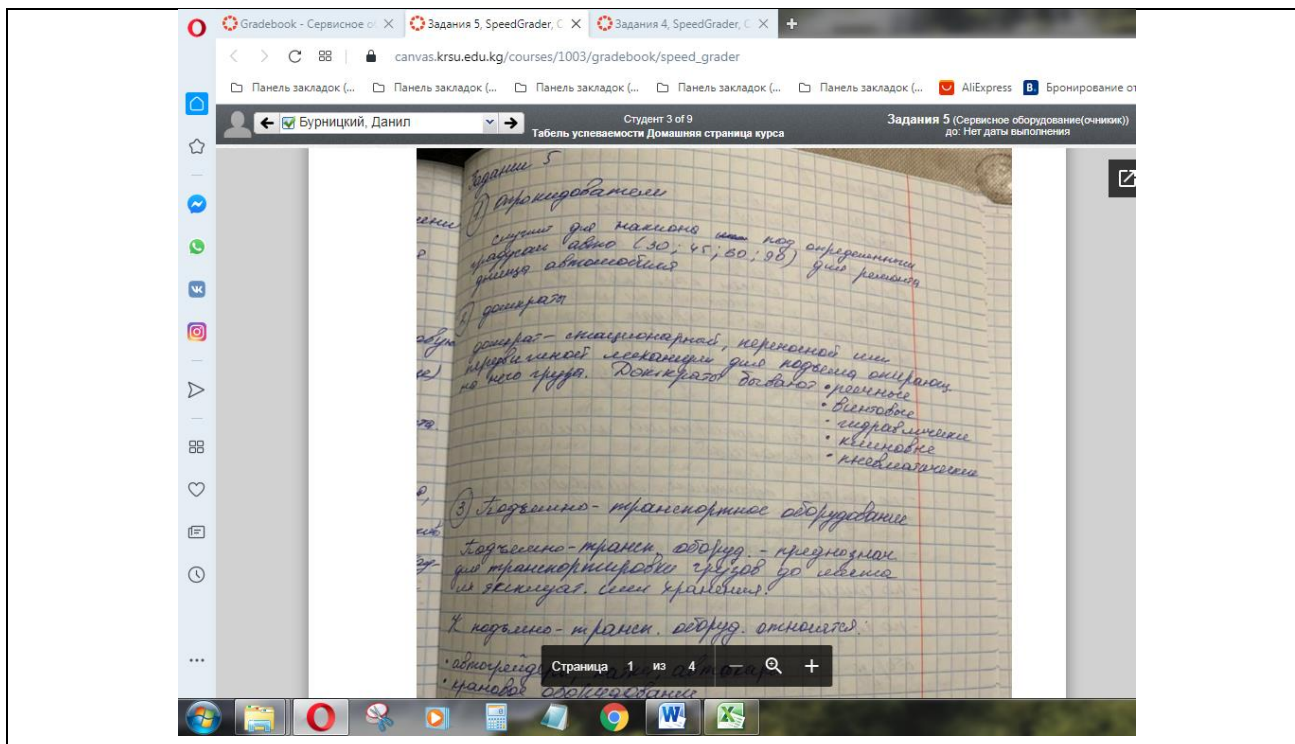 Gradebook - Сервисное о
Задания 5, SpeedGrader, С
Задания 4, SpeedGrader, С
canvas.krsu.edu.kg/courses/1003/gradebook/speed_grader
Панель закладок (...
Панель закладок (...
Панель закладок (...
Панель закладок (...
Панель закладок (...
AliExpress
B. Бронирование от
Бурницкий, Данил
Студент 3 of 9
Табель успеваемости Домашняя страница курса
Задания 5 (Сервисное оборудование(очники))
до: Нет даты выполнения
Задании 5
1 опрокидователи
служит для наклона под определенным
градусам авто (30; 45; 60; 90) для ремонта
днища автомобиля
2 домкраты
домкрат - стационарной, переносной или
передвижной механизм для подъема опирающ
на него груза. Домкраты бывают • реечные
• винтовые
• гидравлически
• клиновые
• пневматически
3 Подъемно-транспортное оборудование
Подъемно-трансп. оборуд. - предназнач
для транспортировки грузов до места
их эксплуат. или хранения.
К подъемно-трансп. оборуд. относятся.
• автогрейдер
• крановое оборудование
Страница 1 из 4